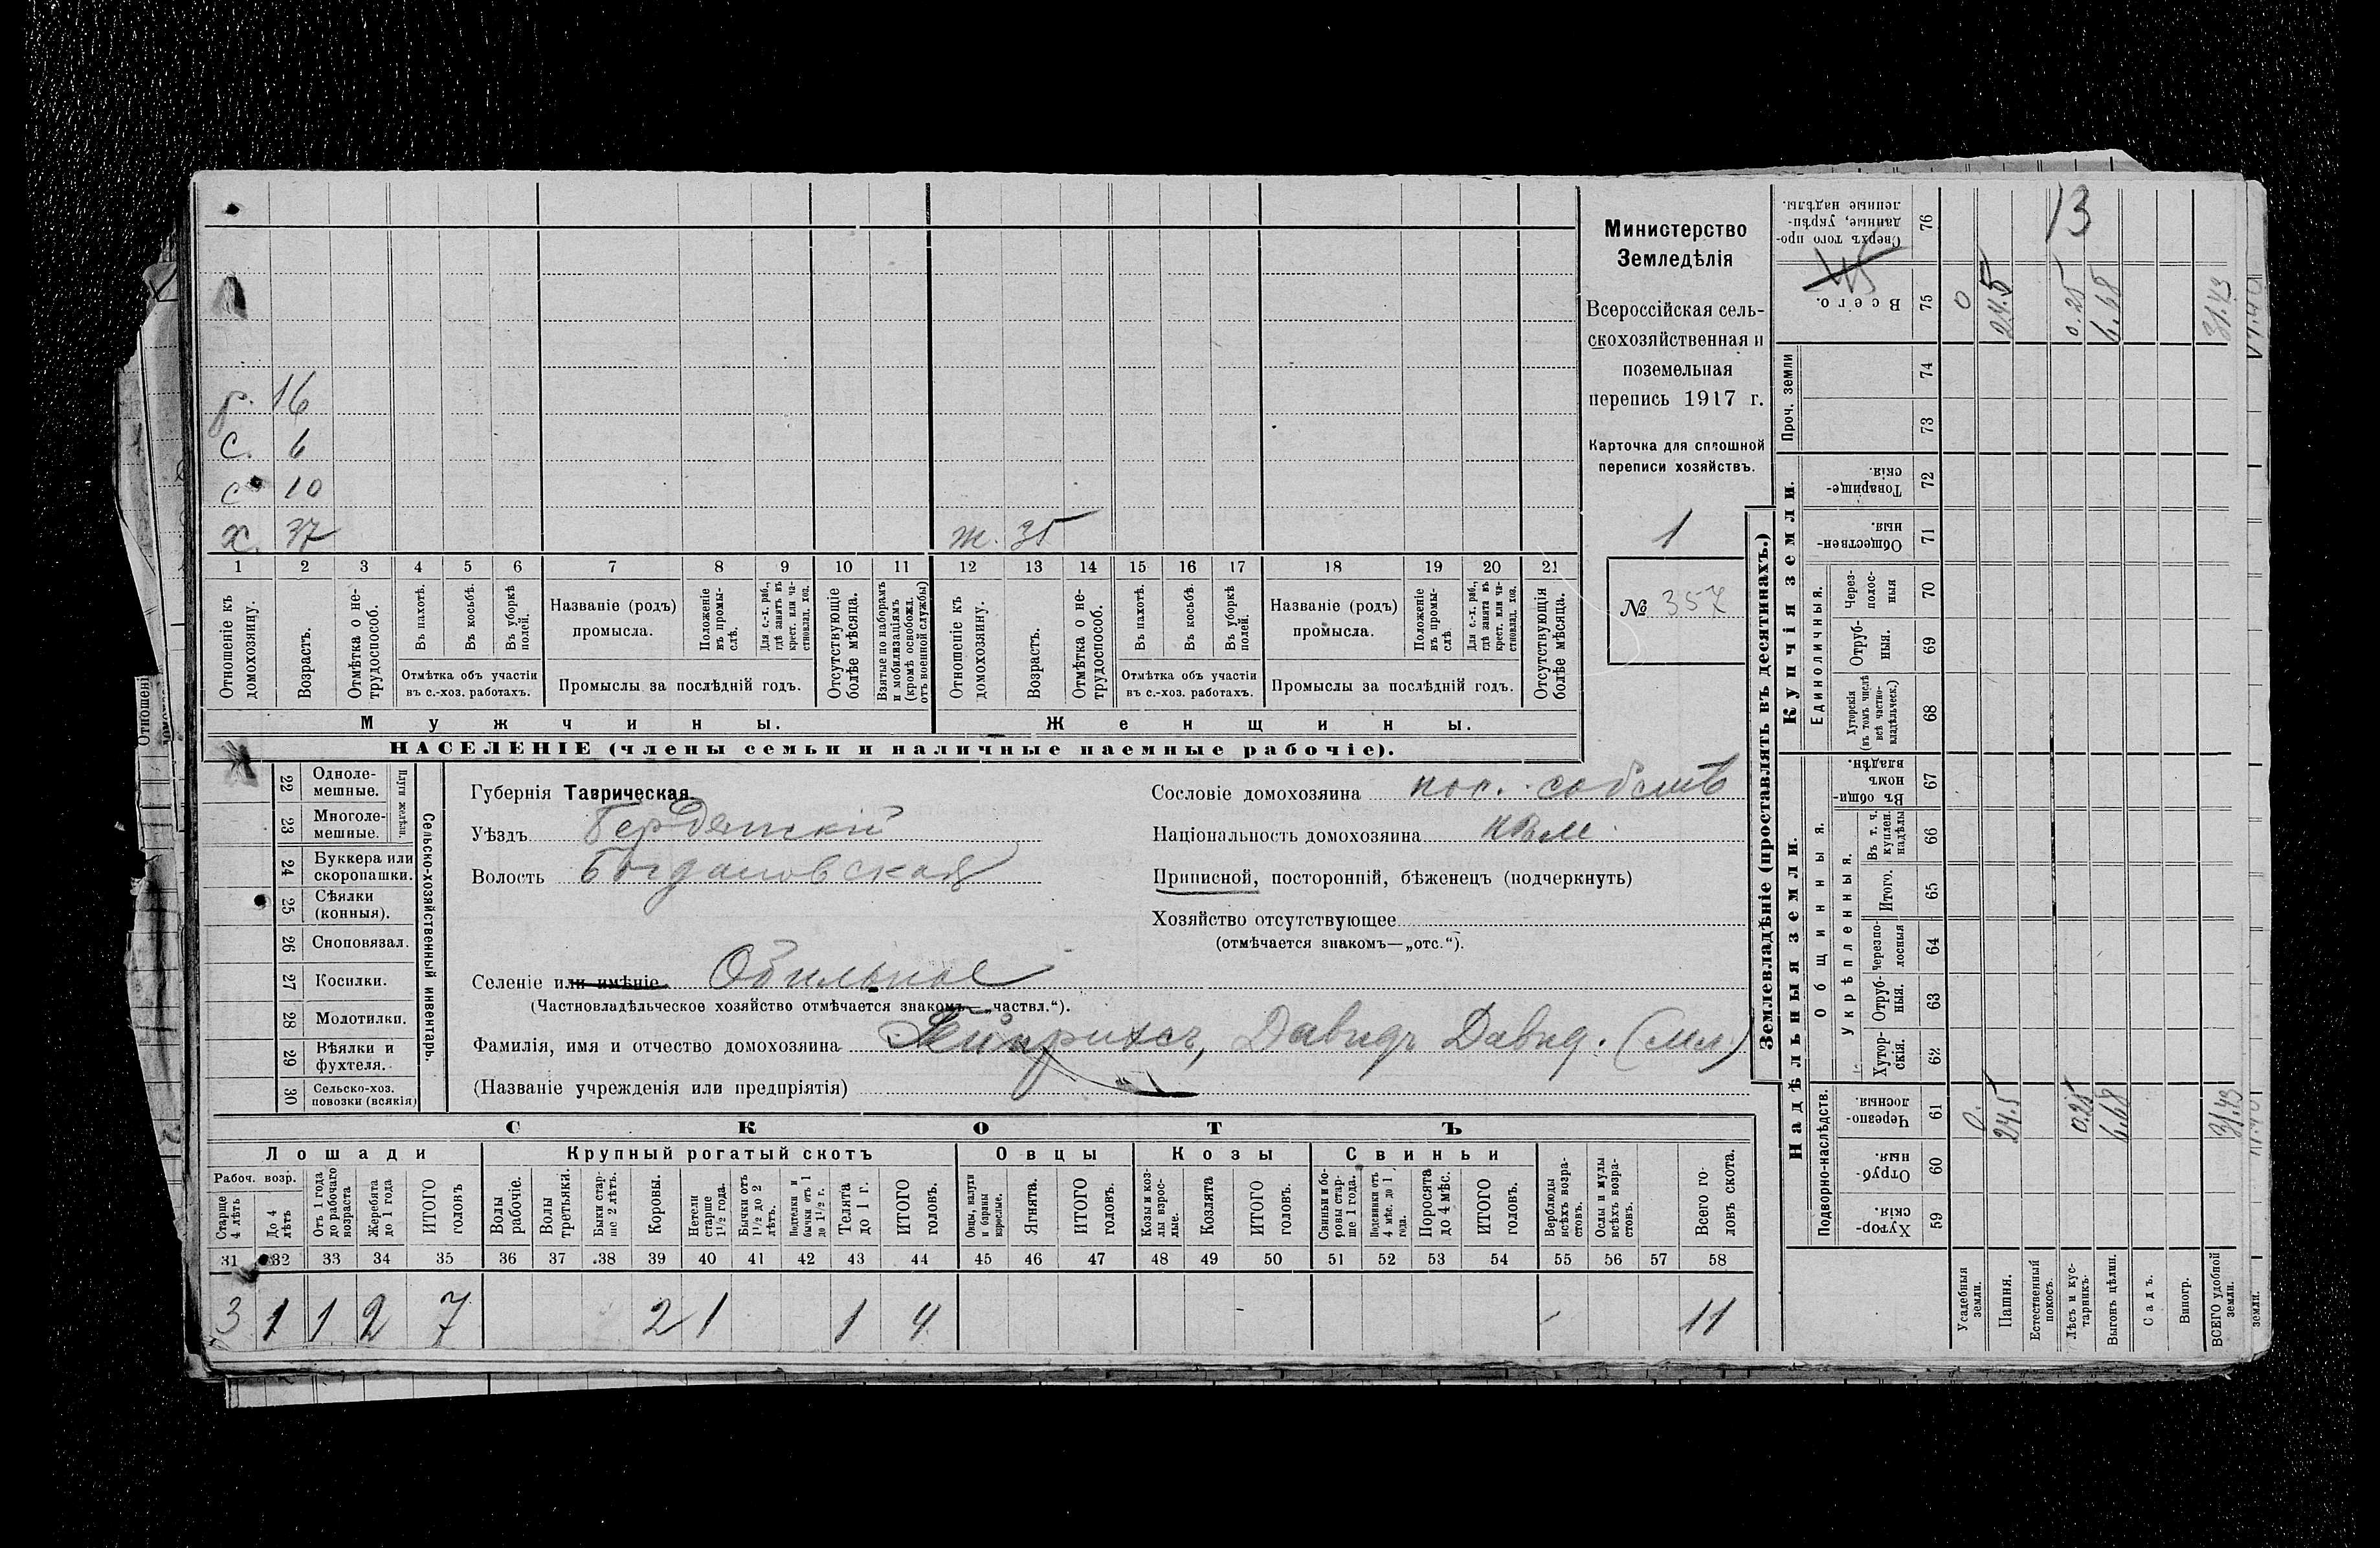 Министерство
Земледѣлія
Всероссійская сель-
скохозяйственная и
поземельная
перепись 1917 г.
Карточка для сплошной
переписи хозяйствъ.
1
№ 357
16
С. 6
с 10
х. 37
ж. 35
1 2 3 4 5 6 7 8 9 10 11 12 13 14 15 16 17 18 19 20 21
Отношеніе къ домохозяину.
Возрастъ.
Отмѣтка о не-трудоспособ.
Въ пахотѣ.
Въ косьбѣ.
Въ уборкѣ полей.
Отмѣтка объ участіи
въ с.-хоз. работахъ.
Названіе (родъ)
промысла.
Положеніе въ промы-слѣ.
Для с.-х. раб., гдѣ занятъ въ крест. или ча-стновлад. хоз.
Промыслы за послѣдній годъ.
Отсутствующіе болѣе мѣсяца.
Взятые по наборамъ и мобилизаціямъ (кромѣ освобожд. отъ военной службы)
Отношеніе къ домохозяину.
Возрастъ.
Отмѣтка о не-трудоспособ.
Въ пахотѣ.
Въ косьбѣ.
Въ уборкѣ полей.
Отмѣтка объ участіи
въ с.-хоз. работахъ.
Названіе (родъ)
промысла.
Положеніе въ промы-слѣ
Для с.-х. раб., гдѣ занята въ крест. или ча-стновлад. хоз.
Промыслы за послѣдній годъ.
Отсутствующія болѣе мѣсяца.
Мужчины.
Женщины.
НАСЕЛЕНІЕ (члены семьи и наличные наемные рабочіе).
22 Одноле-мешные.
23 Многоле-мешные.
Плуги желѣзн.
24 Буккера или скоропашки.
25 Сѣялки (конныя).
26 Сноповязал.
27 Косилки.
28 Молотилки.
29 Вѣялки и фухтеля.
30 Сельско-хоз. повозки (всякія)
Сельско-хозяйственный инвентарь.
Губернія Таврическая
Уѣздъ Бердянскій
Волость Богдановская
Селеніе или имѣніе Обильное
(Частновладѣльческое хозяйство отмѣчается знакомъ—„частвл.“).
Фамилія, имя и отчество домохозяина Гейнрихсъ, Давидъ Давид. (мл.)
(Названіе учрежденія или предпріятія)
Сословіе домохозяина пос. собств
Національность домохозяина
Приписной, посторонній, бѣженецъ (подчеркнуть)
Хозяйство отсутствующее
(отмѣчается знакомъ—„отс.“).
СКОТЪ
Лошади
Крупный рогатый скотъ
Овцы
Козы
Свиньи
Рабоч. возр.
Старше 4 лѣтъ
До 4 лѣтъ
Отъ 1 года до рабочаго возраста
Жеребята до 1 года
ИТОГО головъ
Волы рабочіе.
Волы третьяки.
Быки стар-ше 2 лѣтъ.
Коровы.
Нетели старше 1½ года.
Бычки отъ 1½ до 2 лѣтъ.
Подтелки и бычки отъ 1 до 1½ г.
Телята до 1 г.
ИТОГО головъ.
Овцы, валухи и бараны взрослые.
Ягнята.
ИТОГО головъ.
Козы и коз-лы взрос-лые.
Козлята
ИТОГО головъ.
Свиньи и бо-ровы стар-ше 1 года.
Подсвинки отъ 4 мѣс. до 1 года.
Поросята до 4 мѣс.
ИТОГО головъ.
Верблюды всѣхъ возра-стовъ.
Ослы и мулы всѣхъ возра-стовъ.
Всего го-ловъ скота.
31 32 33 34 35 36 37 38 39 40 41 42 43 44 45 46 47 48 49 50 51 52 53 54 55 56 57 58
3 1 1 2 7 2 1 1 4 11
Землевладѣніе (проставлять въ десятинахъ.)
Надѣльныя земли.
Купчія земли.
Проч. земли
Сверхъ того про-данные, укрѣп-ленные надѣлы. 76
Всего. 75
74
73
Товарище-скія. 72
Обществен-ныя. 71
Единоличныя.
Через-полос-ныя 70
Отруб-ныя. 69
Хуторскія (въ томъ числѣ всѣ частно-владѣльческ.) 68
Общинныя.
Въ общи-номъ владѣн. 67
Укрѣпленныя.
Въ т. ч. куплен. надѣлы 66
Итого. 65
Черезпо-лосныя 64
Отруб-ныя. 63
Хутор-скія. 62
Подворно-наслѣдств.
Черезпо-лосныя. 61
Отруб-ныя. 60
Хутор-скія. 59
Усадебныя земли.
Пашня.
Естественный покосъ.
Лѣсъ и кус-тарникъ.
Выгонъ цѣлин.
Садъ.
Виногр.
ВСЕГО удобной земли.
земли.
13
45
0 24.5 0.25 6.68 31.43
0. 24.5 0.25 6.68 31.43
Отношені